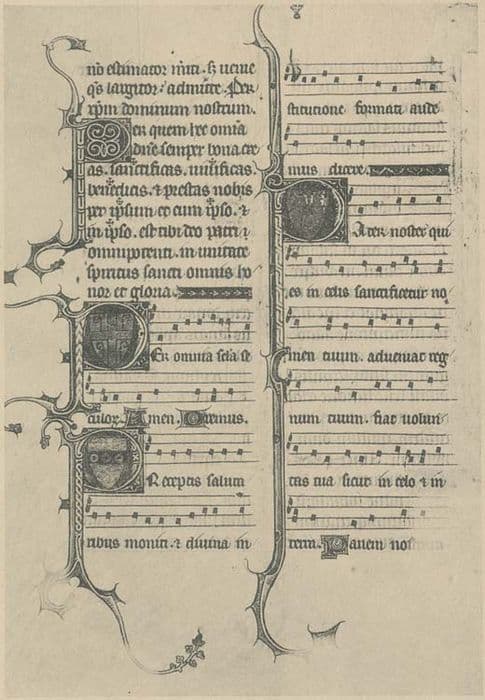 nō estimator mīti. s; venie
q̄s largitor admitte. Per
xp̄m dominum nostrum.
Per quem hec omīa
dn̄e semper bona cre
as. sanctificas. vivificas.
benedicis. ⁊ prestas nobis
per ipsum et cum ipso. ⁊
in ipso. est tibi deo patri ⁊
omnipotenti. in unitate
spiritus sancti omnis ho
nor et gloria.
Per omnia sc̄la se
culor. Amen. Oremus.
Preceptis saluta
ribus moniti. ⁊ divina in
stitutione formati aude
mus dicere.
Pater noster qui
es in celis sanctificetur no
men tuum. adveniat reg
num tuum. fiat volun
tas tua sicut in celo ⁊ in
terra. Panem nos